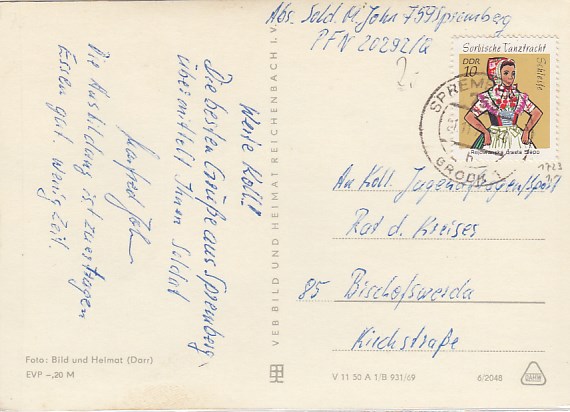 Abs. Sold. M. John 759 Spremberg
PFN 20292/G
Werte Koll.!
Die besten Grüße aus Spremberg,
übermittelt Ihnen Soldat
Manfred John
Die Ausbildung ist zu ertragen
Essen gut. wenig Zeit.
Foto: Bild und Heimat (Darr)
EVP –,20 M
VEB BILD UND HEIMAT REICHENBACH I. V.
Sorbische Tanztracht
DDR
10
Schleife
SPREMB
GRODK
1723
An Koll. Jugendfragen/Sport
Rat d. Kreises
85 Bischofswerda
Kirchstraße
V 11 50 A 1/B 931/69
6/2048